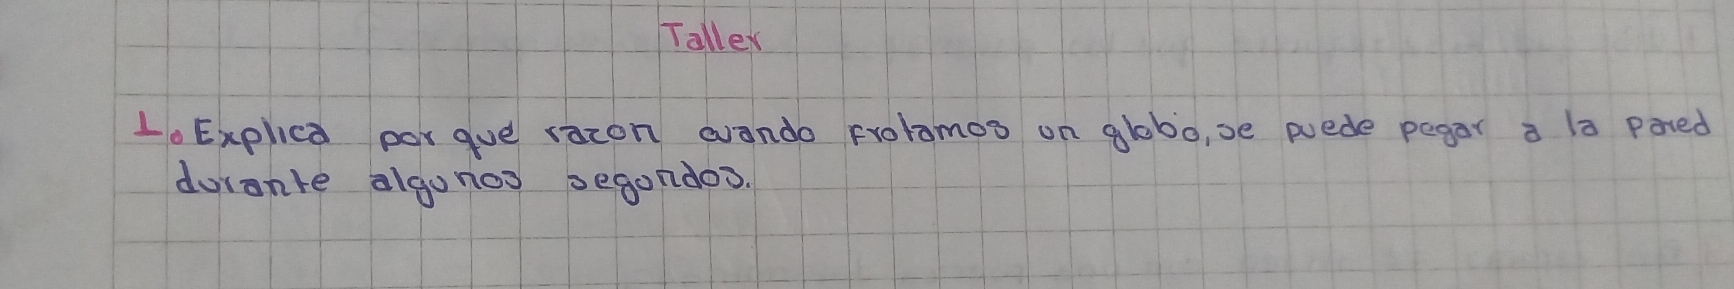 Taller
1. Explica por qué razon cuando frotamos un globo, se puede pegar a la pared
durante algunos segundos.